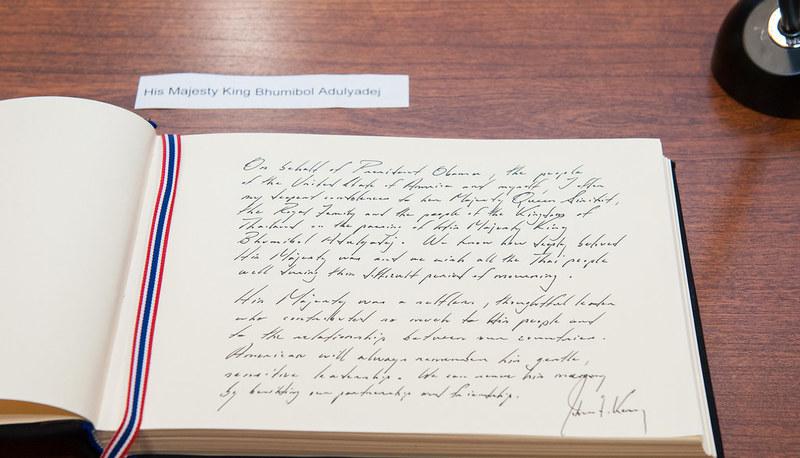 His Majesty King Bhumibol Adulyadej
On behalf of President Obama, the people
of the United States of America and myself, I offer
my deepest condolences to Her Majesty Queen Sirikit,
the Royal Family and the people of the Kingdom of
Thailand on the passing of His Majesty King
Bhumibol Adulyadej. We know how deeply beloved
His Majesty was and we wish all the Thai people
well during this difficult period of mourning.
His Majesty was a selfless, thoughtful leader
who contributed so much to his people and
to the relationship between our countries.
Americans will always remember his gentle,
sensitive leadership. We can honor his memory
by building our partnership and friendship.
John F. Kerry